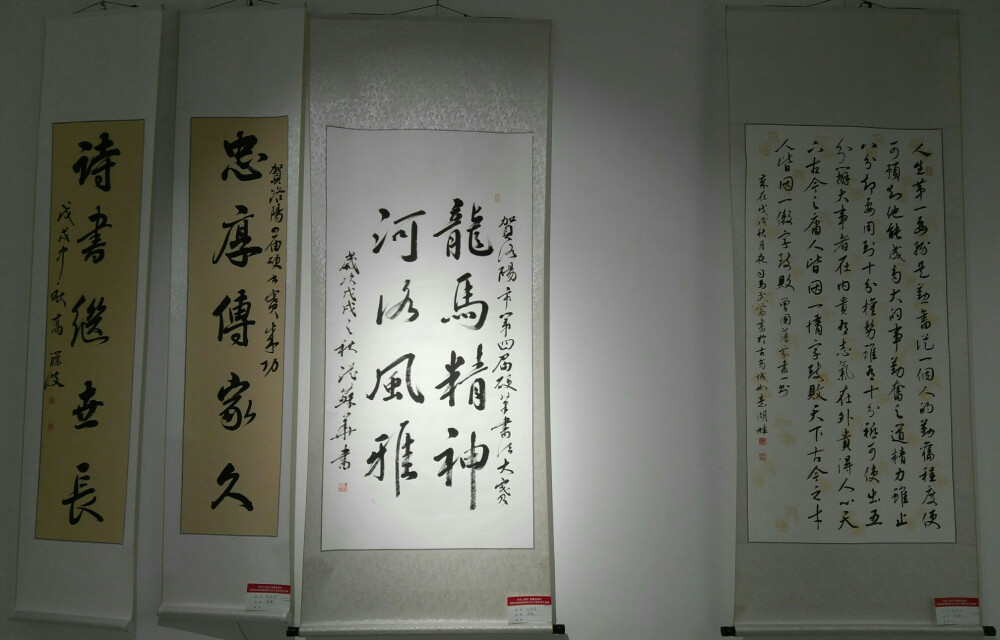 人生第一要務是勤奮從一個人的勤奮程度便
可預知他能成多大的事勤奮之道精力雖止
八分却要用到十分權勢雖有十分祇可使出五
分辦大事者在内貴有志氣在外貴得人心天
下古今之庸人皆因一惰字致敗天下古今之才
人皆因一傲字致敗 曾國藩家書一則
賀洛陽市第四届硬筆書法大賽
龍馬精神
河洛風雅
歲次戊戌之秋 蘇華書
賀洛陽四届硬書賽成功
忠厚傳家久
诗書繼世長
戊戌中秋